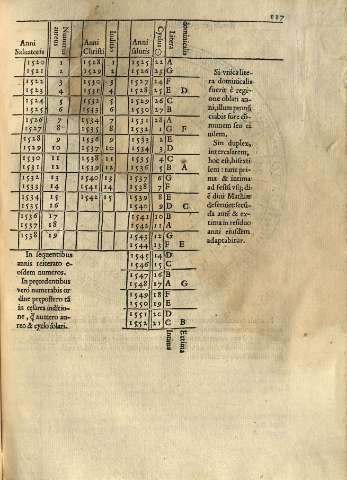 117
Anni Salvatoris Numerus aureus Anni Christi Indictio Anni salutis Cyclus ☉ Litera dominicalis
1520 1 1528 1 1525 22 A
1521 2 1529 2 1526 23 G
1522 3 1530 3 1527 24 F
1523 4 1531 4 1528 25 E D
1524 5 1532 5 1529 26 C
1525 6 1533 6 1530 27 B
1526 7 1534 7 1531 28 A
1527 8 1535 8 1532 1 G F
1528 9 1536 9 1533 2 E
1529 10 1537 10 1534 3 D
1530 11 1538 11 1535 4 C
1531 12 1539 12 1536 5 B A
1532 13 1540 13 1537 6 G
1533 14 1541 14 1538 7 F
1534 15 1542 15 1539 8 E
1535 16 1540 9 D C
1536 17 1541 10 B
1537 18 1542 11 A
1538 19 1543 12 G
1544 13 F E
1545 14 D
1546 15 C
1547 16 B
1548 17 A G
1549 18 F
1550 19 E
1551 20 D
1552 21 C B
Intima Extima
In sequentibus
annis reiterato e-
osdem numeros.
In precedentibus
vero numerabis or
dine prepostero tā
in cyclo solari.
Si vnica lite
ra dominicalis
fuerit è regi-
one oblati an-
Sin duplex,
intercalarem,
ad festū vsq; di-
ē diui Mathiæ
tima in residuo
anni eiusdem
adaptabitur.